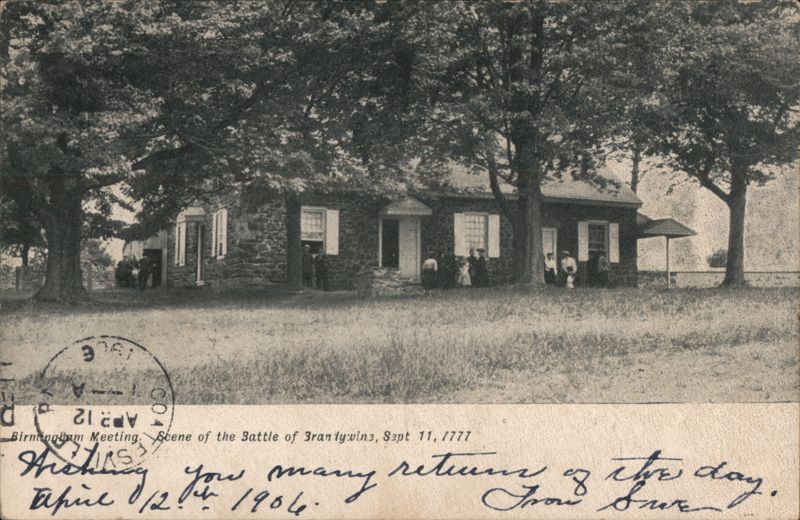 COATESVILLE PA
APR 12
A
1906
Birmingham Meeting. Scene of the Battle of Brandywine, Sept 11, 1777
Wishing you many returns of the day.
April 12th 1906. From